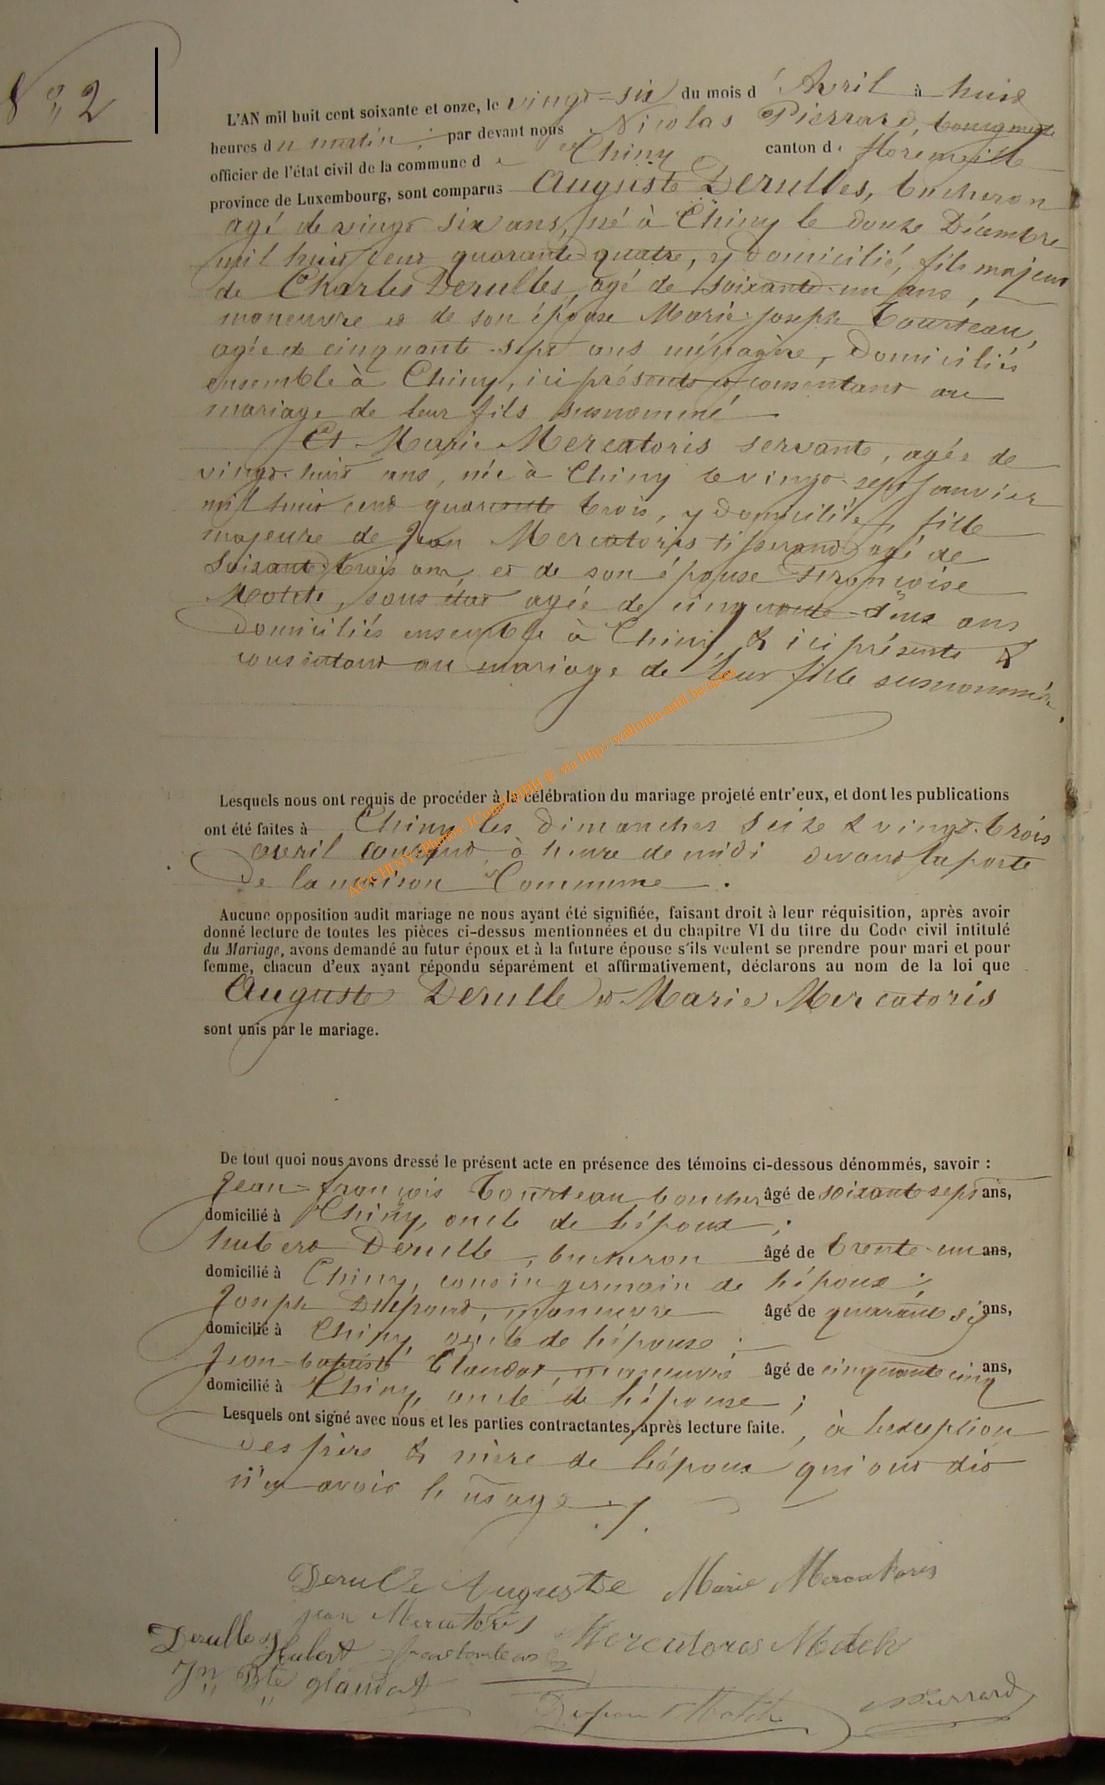 N° 2
L'AN mil huit cent soixante et onze, le vingt-six du mois d'Avril à huit
heures du matin ; par devant nous Nicolas Pierrard, bourgmestre
officier de l'état civil de la commune de Chiny canton de florenville
province de Luxembourg, sont comparus Auguste Derulles, bucheron
agé de vingt six ans, né à Chiny le douze Décembre
mil huit cent quarante quatre, y domicilié, fils majeur
de Charles Derulles, agé de soixante-un ans,
manœuvre et de son épouse Marie Joseph Tourteau,
agée de cinquante-sept ans ménagère, Domiciliés
ensemble à Chiny, ici présents et consentant au
mariage de leur fils susnommé
Et Marie Mercatoris servante, agée de
vingt-huit ans, née à Chiny le vingt-sept Janvier
mil huit cent quarante trois, y domiciliée, fille
majeure de Jean Mercatoris tisserand agé de
Soixante-trois ans, et de son épouse Françoise
sous état agée de cinquante-deux ans
Domiciliés ensemble à Chiny, & ici présents &
consentant au mariage de leur fille susnommée.
Lesquels nous ont requis de procéder à la célébration du mariage projeté entr'eux, et dont les publications
ont été faites à Chiny les dimanches Seize & vingt-trois
avril courant, à heure de midi devant la porte
De la maison Commune.
Aucune opposition audit mariage ne nous ayant été signifiée, faisant droit à leur réquisition, après avoir
donné lecture de toutes les pièces ci-dessus mentionnées et du chapitre VI du titre du Code civil intitulé
du Mariage, avons demandé au futur époux et à la future épouse s'ils veulent se prendre pour mari et pour
femme, chacun d'eux ayant répondu séparément et affirmativement, déclarons au nom de la loi que
Auguste Derulle et Marie Mercatoris
sont unis par le mariage.
De tout quoi nous avons dressé le présent acte en présence des témoins ci-dessous dénommés, savoir :
Jean-françois Tourteau âgé de soixante sept ans,
domicilié à Chiny, oncle de l'époux ;
hubert Derulle, bucheron âgé de trente-un ans,
domicilié à Chiny, cousin germain de l'époux ;
Joseph manœuvre âgé de quarante six ans,
domicilié à Chiny, oncle de l'épouse ;
Jean-baptiste Glaudot, manœuvre âgé de cinquante cinq ans,
domicilié à Chiny, oncle de l'épouse ;
Lesquels ont signé avec nous et les parties contractantes, après lecture faite. , à l'exception
des père & mère de l'époux qui ont dit
n'en avoir l'usage ./.
Derulle Auguste Marie Mercatoris
jean Mercatoris Mercatores Motch
Derulle Hubert
Jn Bte glaudot
NPierrard